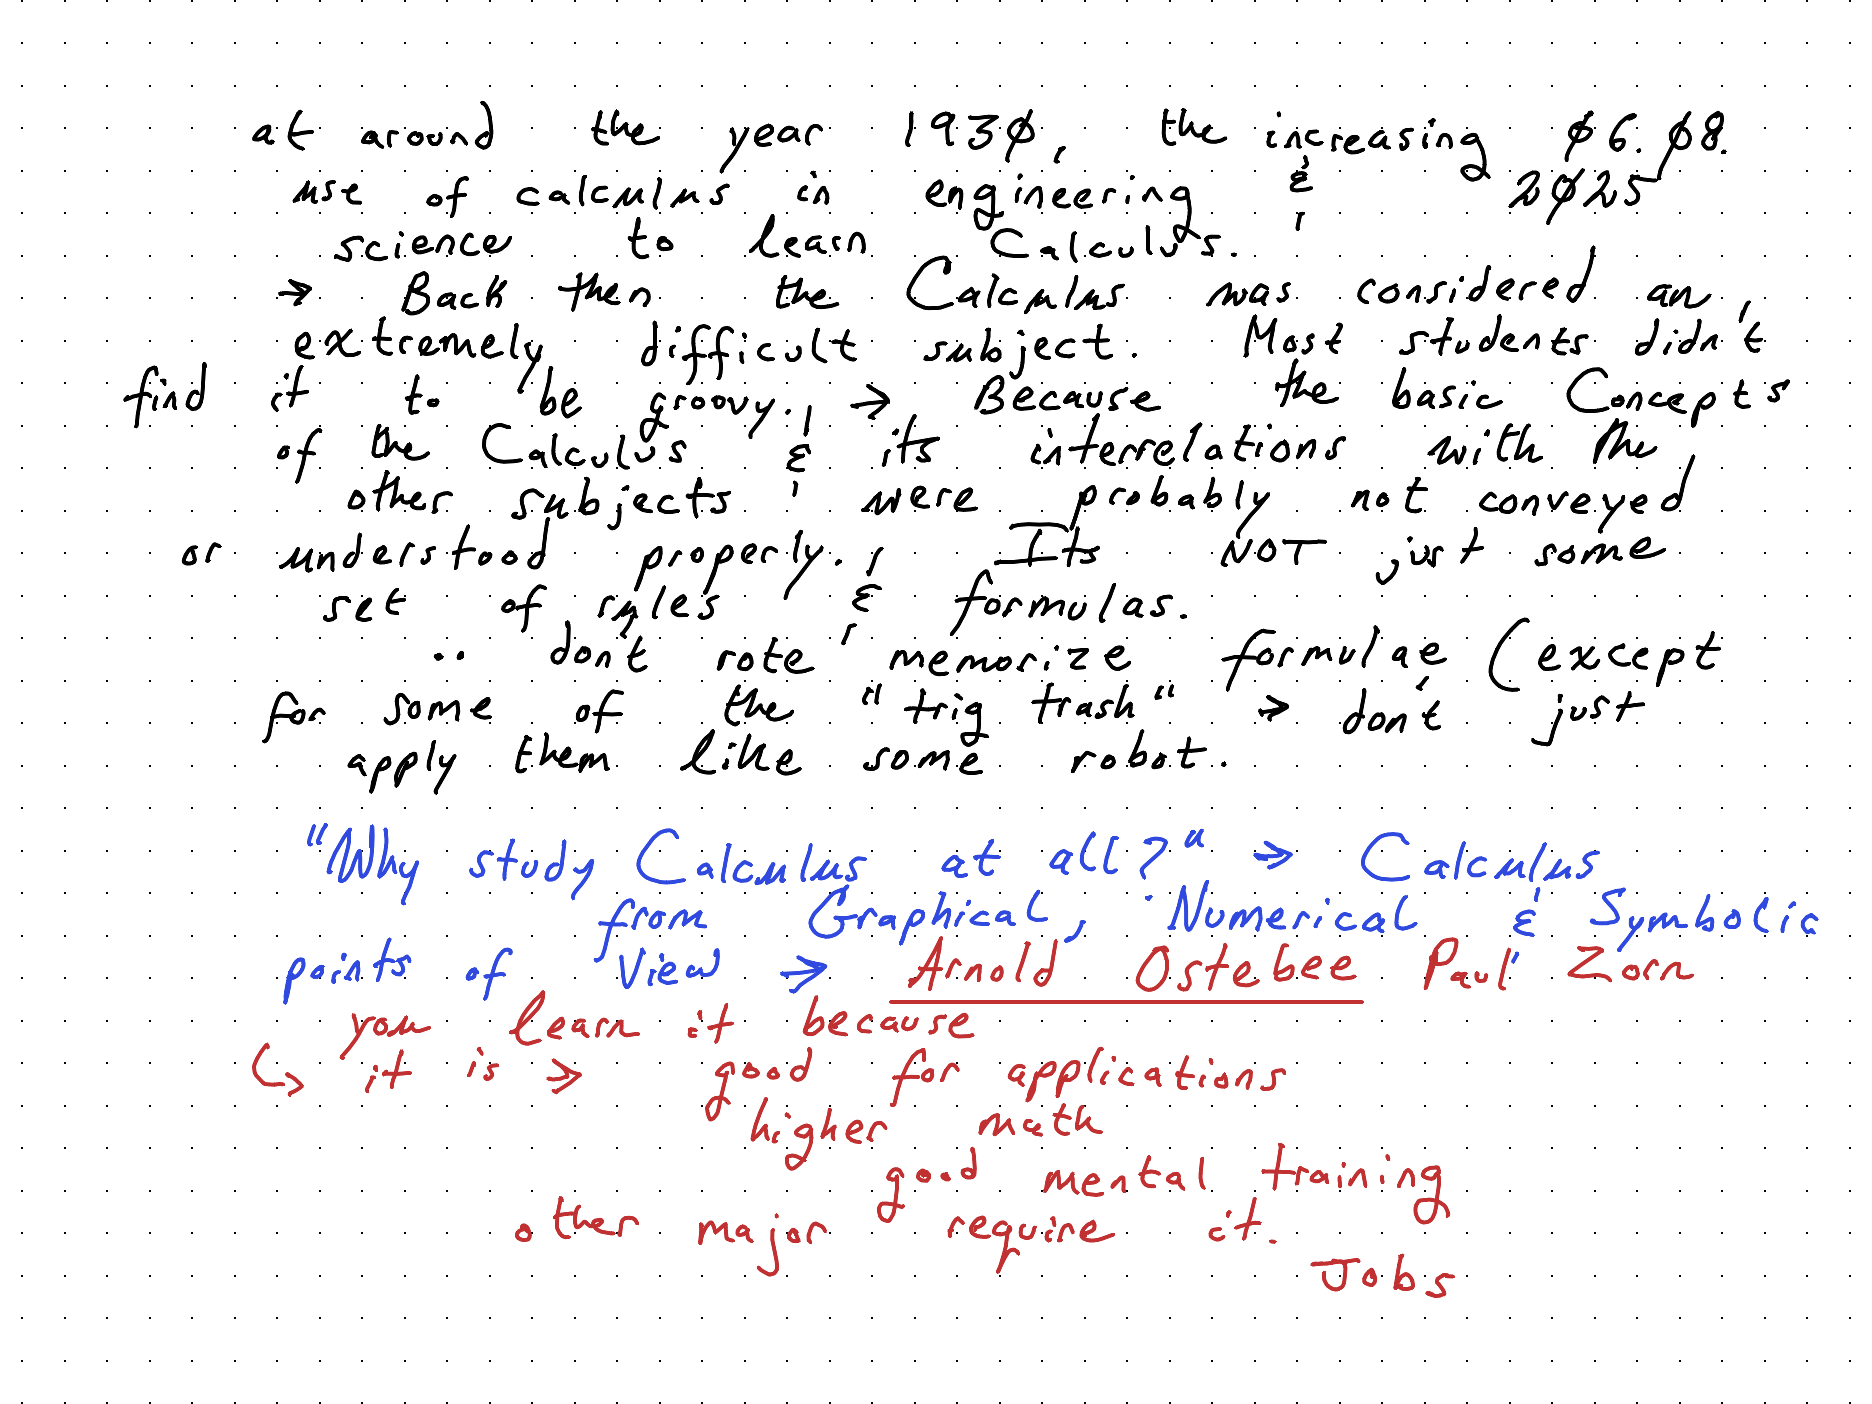 at around the year 1930, the increasing 06.08.
use of calculus in engineering & 2025
science to learn Calculus.
→ Back then the Calculus was considered an
extremely difficult subject. Most students didn't
find it to be groovy. → Because the basic Concepts
of the Calculus & its interrelations with the
other subjects were probably not conveyed
or understood properly. Its NOT just some
set of rules & formulas.
.. don't rote memorize formulae (except
for some of the "trig trash" → don't just
apply them like some robot.
"Why study Calculus at all?" → Calculus
from Graphical, Numerical & Symbolic
points of View → Arnold Ostebee Paul Zorn
you learn it because
↳ it is → good for applications
higher math
good mental training
other major require it.
Jobs